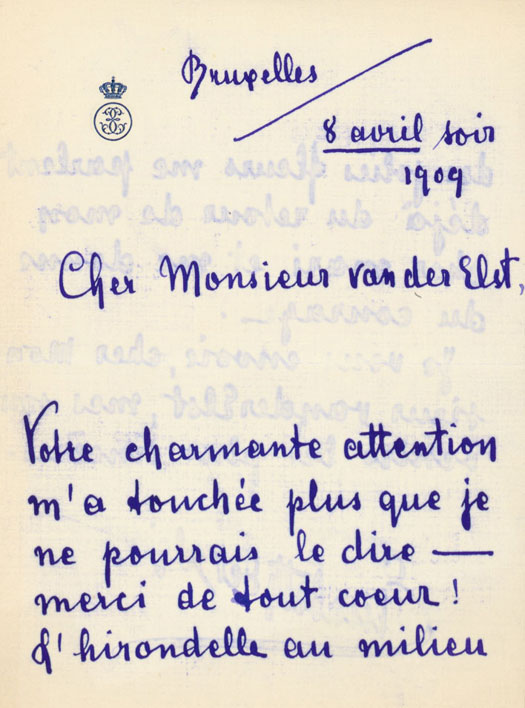 Bruxelles
8 avril soir
1909
Cher Monsieur van der Elst,
Votre charmante attention
m'a touchée plus que je
ne pourrais le dire —
merci de tout coeur !
L'hirondelle au milieu